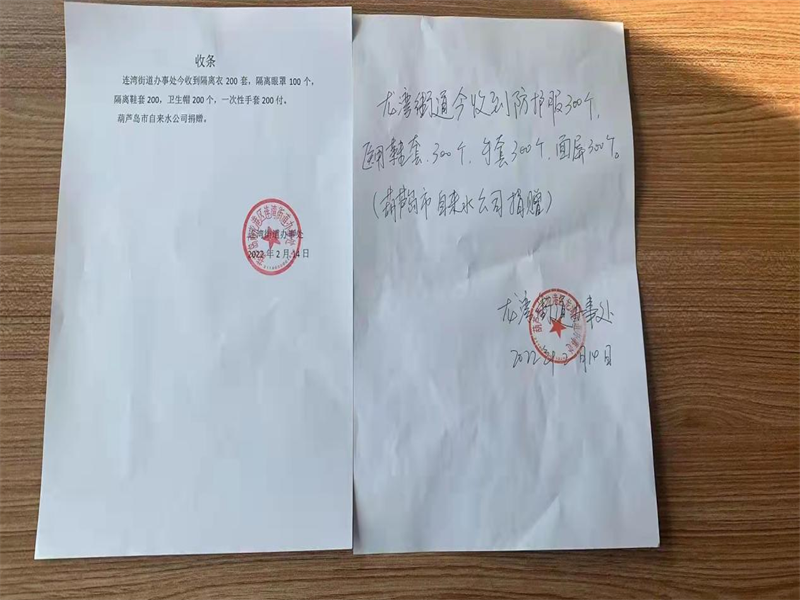 收条
连湾街道办事处今收到隔离衣200套，隔离眼罩100个，
隔离鞋套200，卫生帽200个，一次性手套200付。
葫芦岛市自来水公司捐赠。
连湾街道办事处
2022年2月14日
龙湾街道今收到防护服300个，
医用鞋套300个，手套300个，面屏300个。
（葫芦岛市自来水公司捐赠）
龙湾街道办事处
2022年2月14日